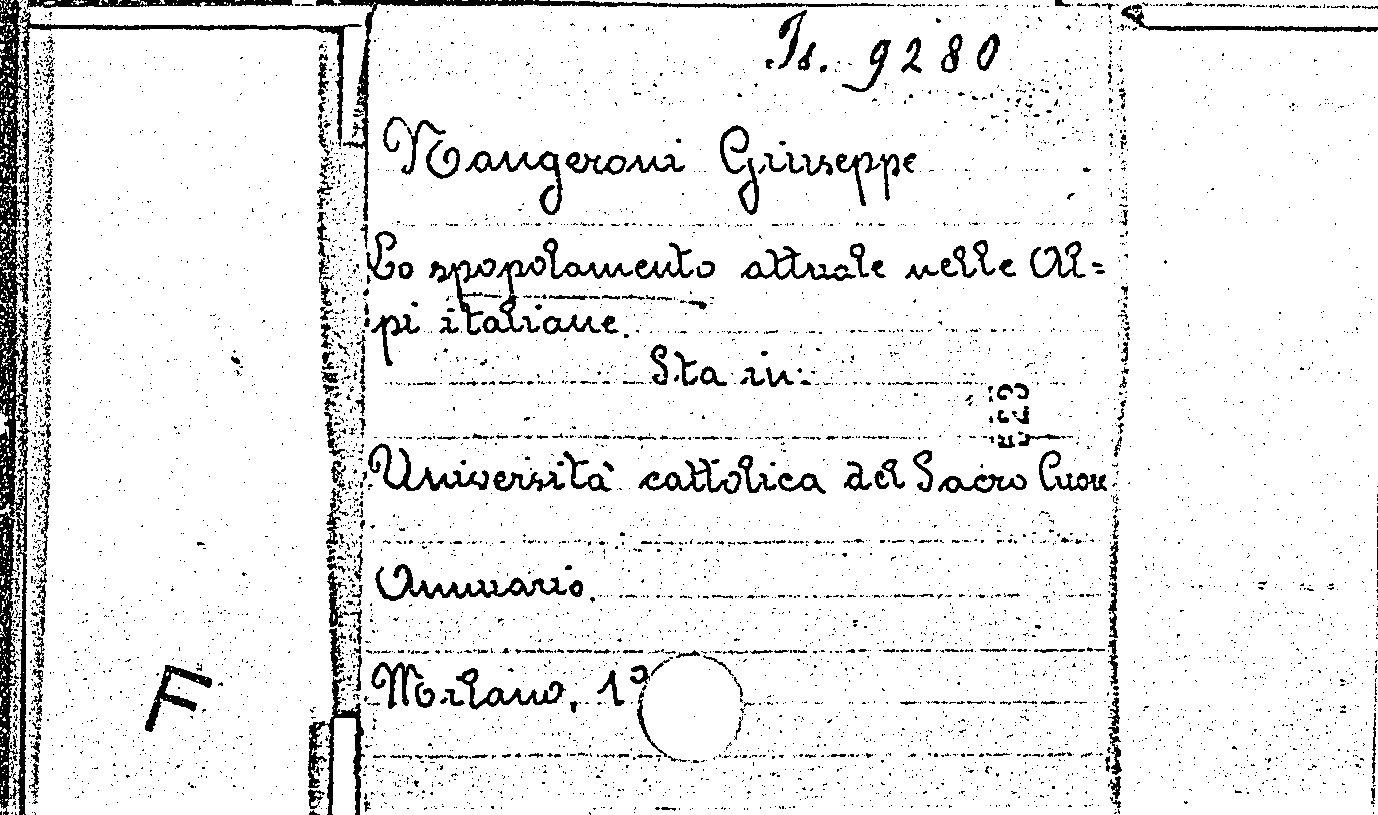 Is. 9280
Nangeroni Giuseppe
Lo spopolamento attuale nelle Al=
pi italiane.
Sta in:
Università cattolica del Sacro Cuore
Annuario.
Milano, 19
F